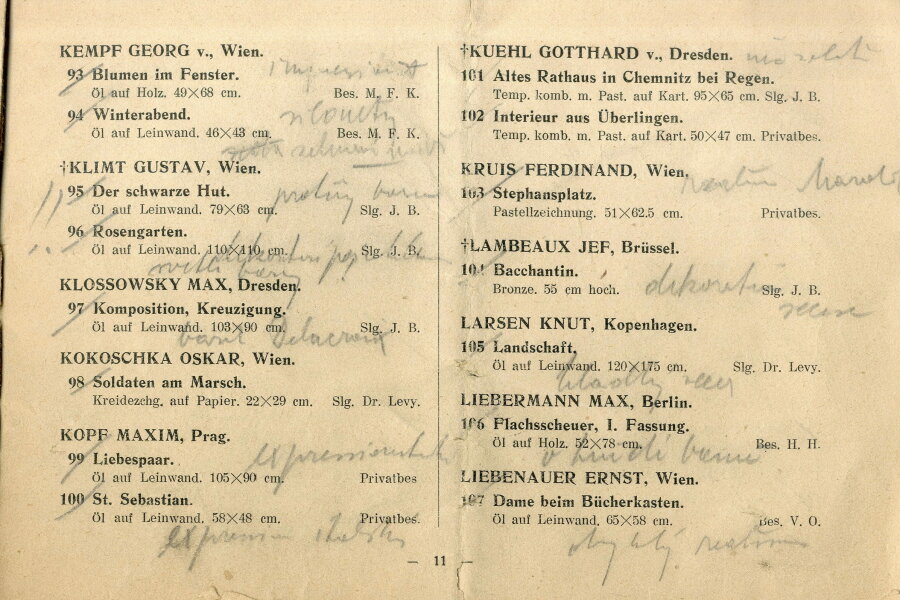 KEMPF GEORG v., Wien.
93 Blumen im Fenster.
Öl auf Holz. 49×68 cm. Bes. M. F. K.
94 Winterabend.
Öl auf Leinwand. 46×43 cm. Bes. M. F. K.
†KLIMT GUSTAV, Wien.
95 Der schwarze Hut.
Öl auf Leinwand. 79×63 cm. Slg. J. B.
96 Rosengarten.
Öl auf Leinwand. 110×110 cm. Slg. J. B.
KLOSSOWSKY MAX, Dresden.
97 Komposition, Kreuzigung.
Öl auf Leinwand. 103×90 cm. Slg. J. B.
Delacroix
KOKOSCHKA OSKAR, Wien.
98 Soldaten am Marsch.
Kreidezchg. auf Papier. 22×29 cm. Slg. Dr. Levy.
KOPF MAXIM, Prag.
99 Liebespaar.
Öl auf Leinwand. 105×90 cm. Privatbes
100 St. Sebastian.
Öl auf Leinwand. 58×48 cm. Privatbes.
†KUEHL GOTTHARD v., Dresden.
101 Altes Rathaus in Chemnitz bei Regen.
Temp. komb. m. Past. auf Kart. 95×65 cm. Slg. J. B.
102 Interieur aus Überlingen.
Temp. komb. m. Past. auf Kart. 50×47 cm. Privatbes.
KRUIS FERDINAND, Wien.
103 Stephansplatz.
Pastellzeichnung. 51×62.5 cm. Privatbes.
†LAMBEAUX JEF, Brüssel.
104 Bacchantin.
Bronze. 55 cm hoch. Slg. J. B.
LARSEN KNUT, Kopenhagen.
105 Landschaft.
Öl auf Leinwand. 120×175 cm. Slg. Dr. Levy.
LIEBERMANN MAX, Berlin.
106 Flachsscheuer, I. Fassung.
Öl auf Holz. 52×78 cm. Bes. H. H.
LIEBENAUER ERNST, Wien.
107 Dame beim Bücherkasten.
Öl auf Leinwand. 65×58 cm. Bes. V. O.
— 11 —